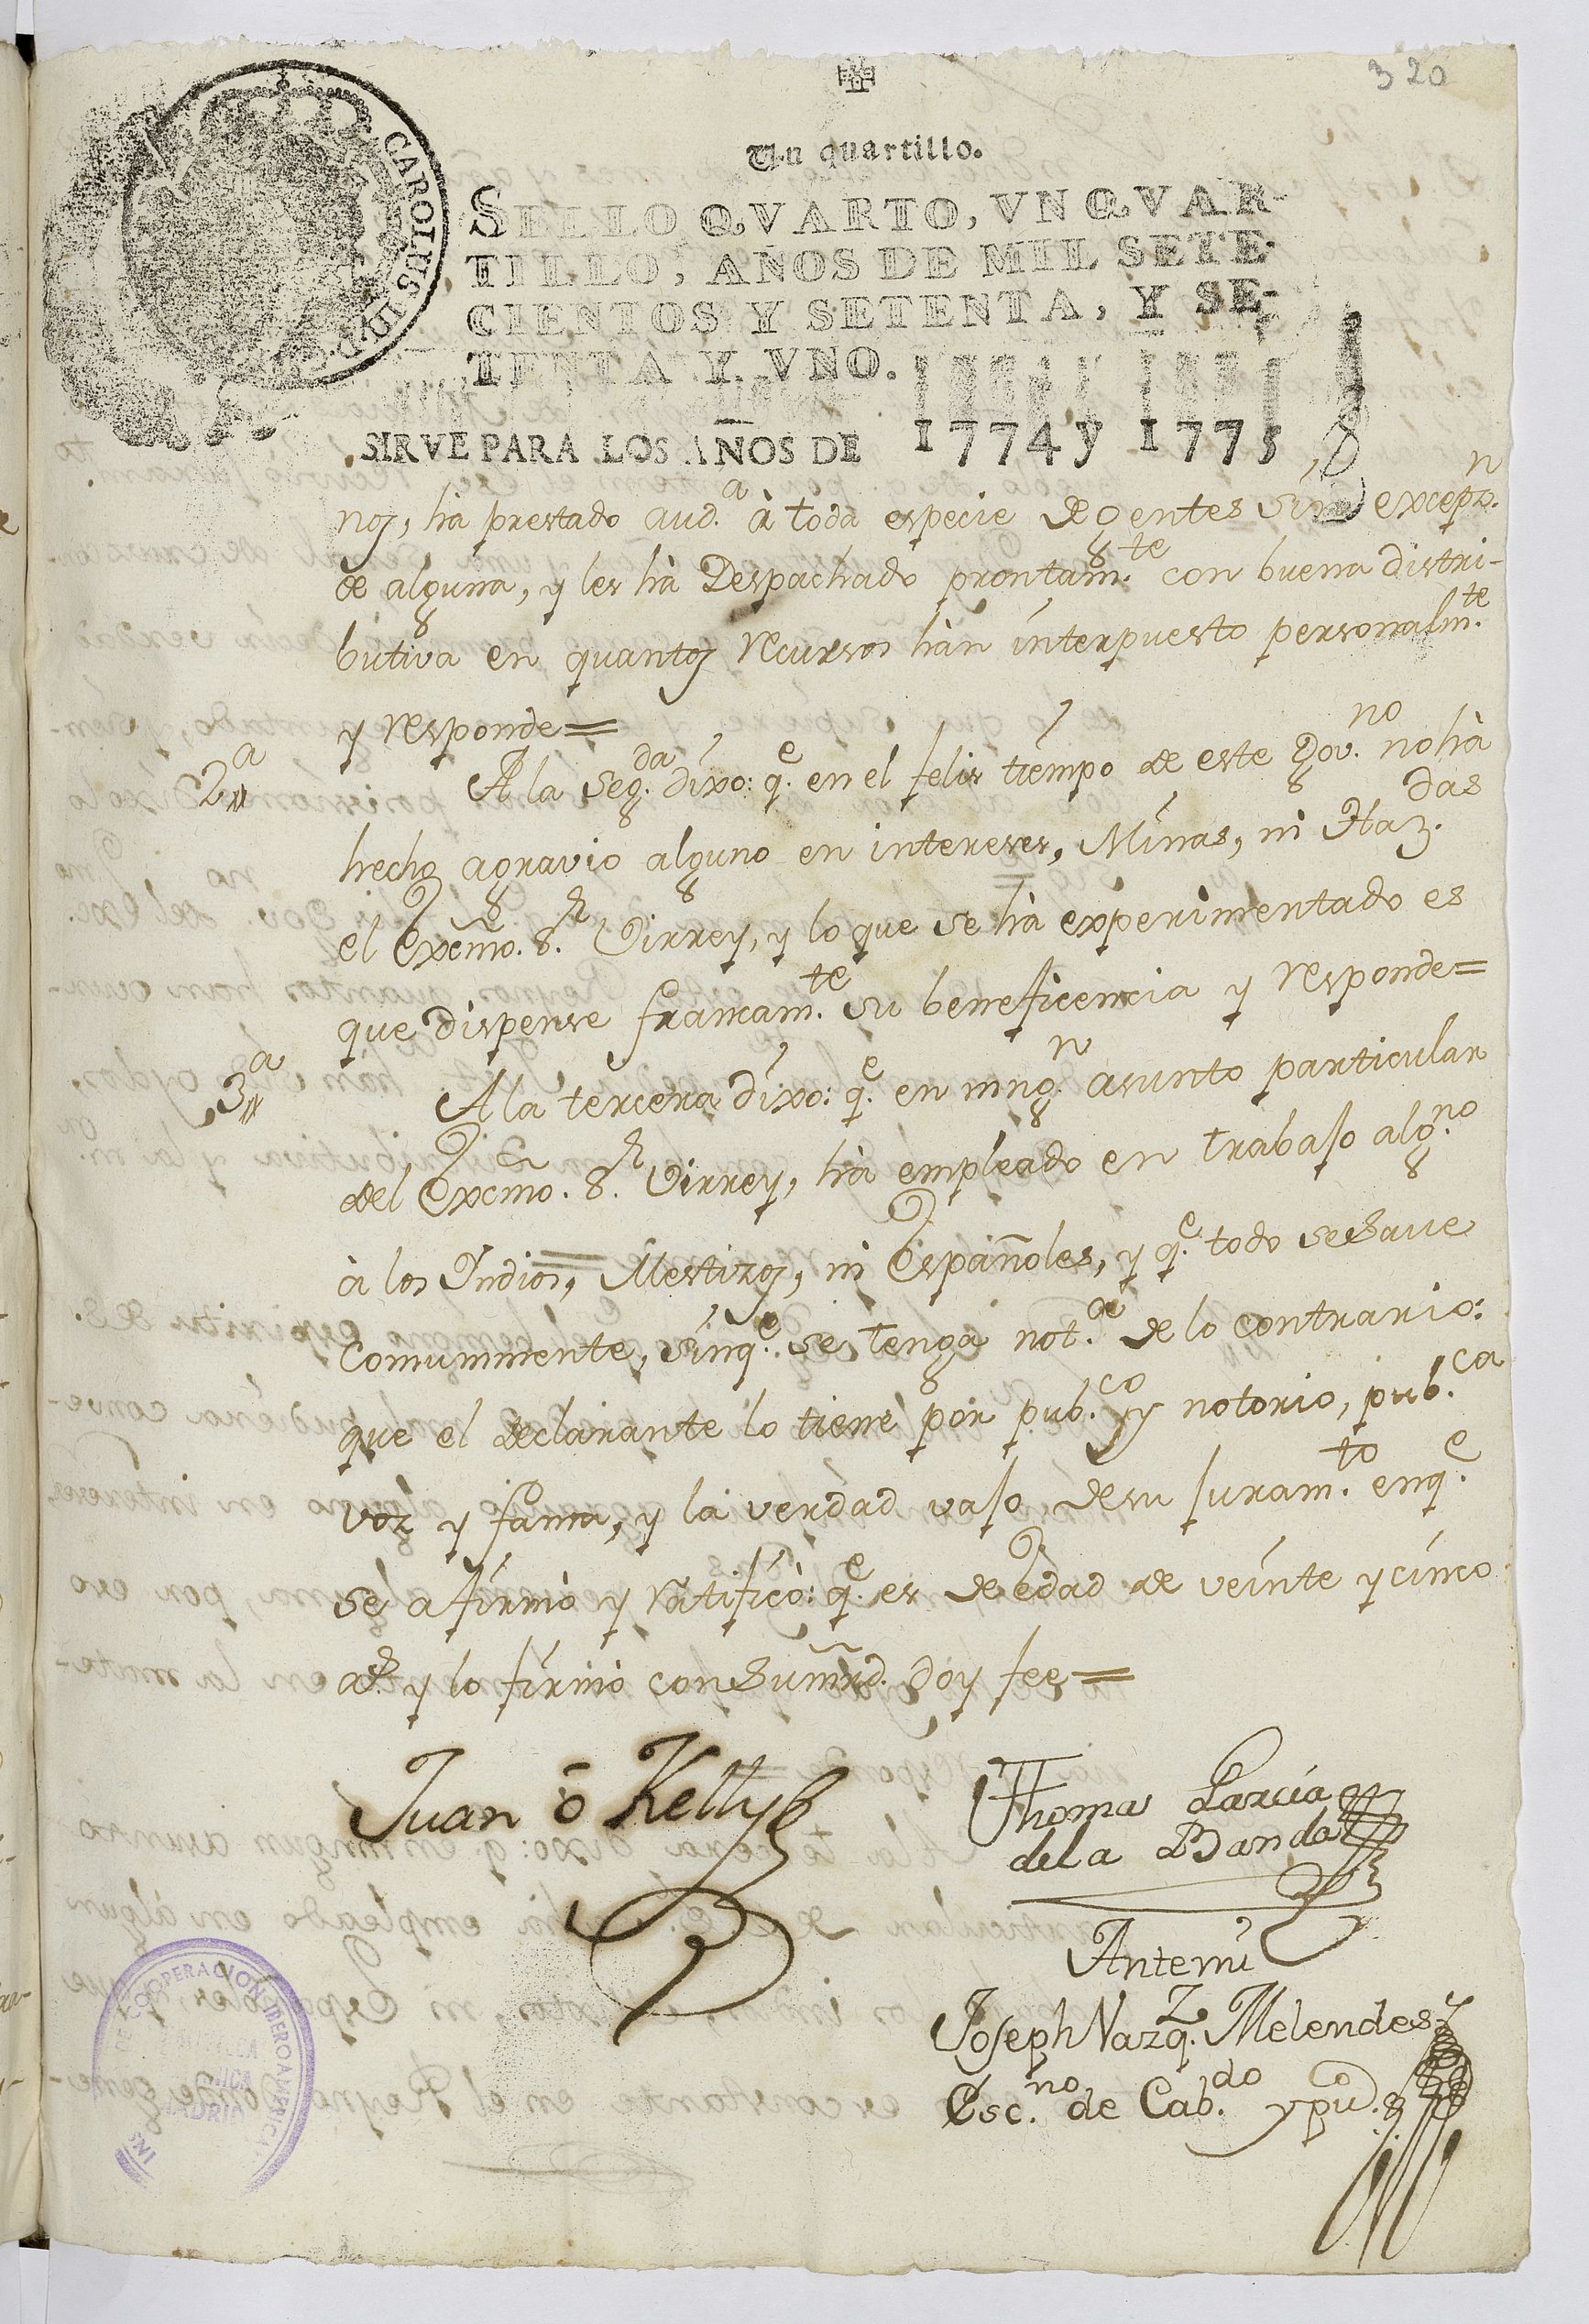 320
Un quartillo.
SELLO QVARTO, VN QVAR-
TILLO, AÑOS DE MIL SETE-
CIENTOS Y SETENTA, Y SE-
TENTA Y VNO.
CAROLUS III
SIRVE PARA LOS AÑOS DE 1774 y 1775
nos, hà prestado aud.ª à toda especie de gentes sin excepz.n
de alguna, y les hà Despachado prontam.te con buena distri-
butiva en quantos recursos hàn interpuesto personalm.te
y responde=
2.ª A la seg.da dixo: q.e en el felis tiempo de este Gov.no no hà
hecho agravio alguno en intereses, Minas, ni Haz.das
el Excmo. S.r Virrey, y lo que se hà experimentado es
que dispense francam.te su beneficencia y responde=
3.ª A la tercera dixo: q.e en ning.n asunto particular
del Excmo. S.r Virrey, hà empleado en trabajo alg.no
à los Indios, Mestizos, ni Españoles, y q.e todo se save
comunmente, sinq.e se tenga not.ª de lo contrario:
que el declarante lo tiene por pub.co y notorio, pub.ca
voz y fama, y la verdad vajo de su juram.to enq.e
se afirmò y ratificò: q.e es de edad de veinte y cinco
a.s y lo firmò con su mrd. Doy fee=
Juan ō Kelly
Thomas Garcia
de la Banda
Antemi
Joseph Vazq.z Melendes
Esc.no de Cab.do y pu.co
DE COOPERACION IBEROAMERICA
MADRID